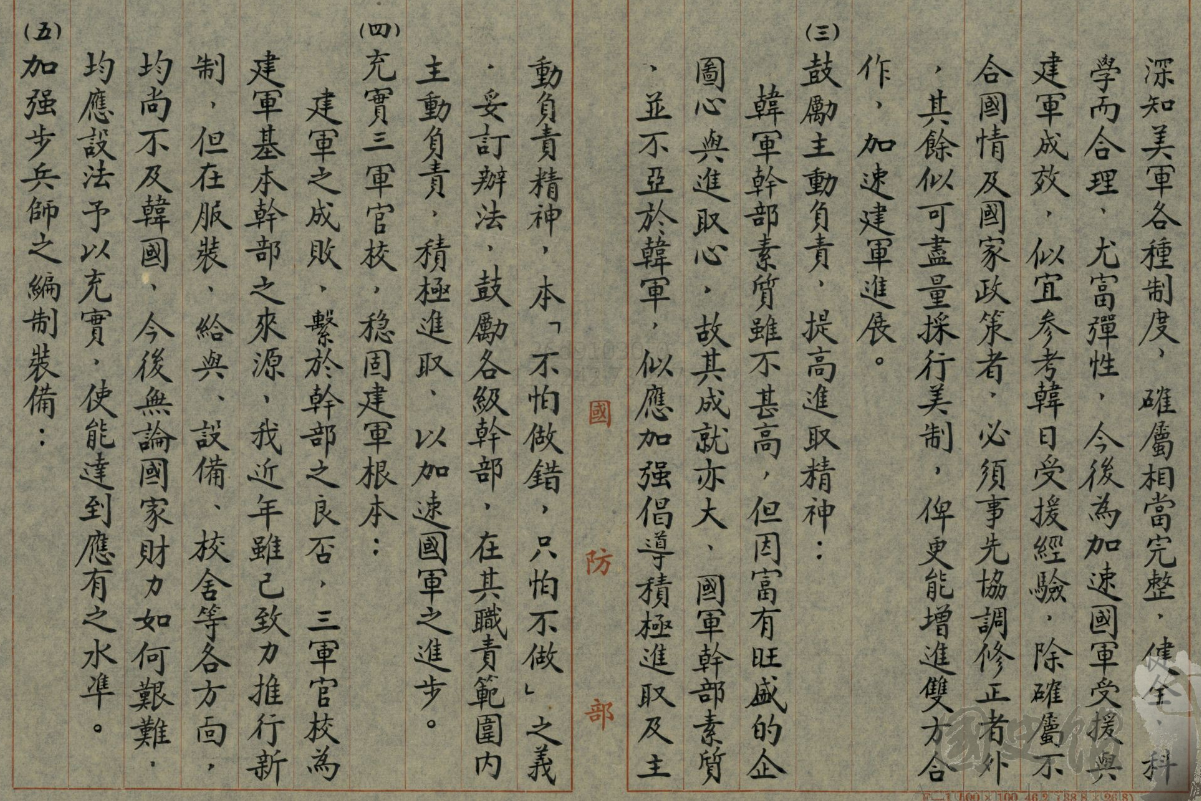 深知美軍各種制度，確屬相當完整，健全，科
學而合理，尤富彈性，今後為加速國軍受援與
建軍成效，似宜參考韓日受援經驗，除確屬不
合國情及國家政策者，必須事先協調修正者外
，其餘似可盡量採行美制，俾更能增進雙方合
作，加速建軍進展。
(三)鼓勵主動負責，提高進取精神：
韓軍幹部素質雖不甚高，但因富有旺盛的企
圖心與進取心，故其成就亦大、國軍幹部素質
，並不亞於韓軍，似應加强倡導積極進取及主
國防部
動負責精神，本「不怕做錯，只怕不做」之義
，妥訂辦法，鼓勵各級幹部，在其職責範圍內
主動負責，積極進取、以加速國軍之進步。
(四)充實三軍官校，穩固建軍根本：
建軍之成敗，繫於幹部之良否，三軍官校為
建軍基本幹部之來源，我近年雖已致力推行新
制，但在服裝、給與、設備、校舍等各方面，
均尚不及韓國、今後無論國家財力如何艱難，
均應設法予以充實，使能達到應有之水準。
(五)加强步兵師之編制裝備：
國史館